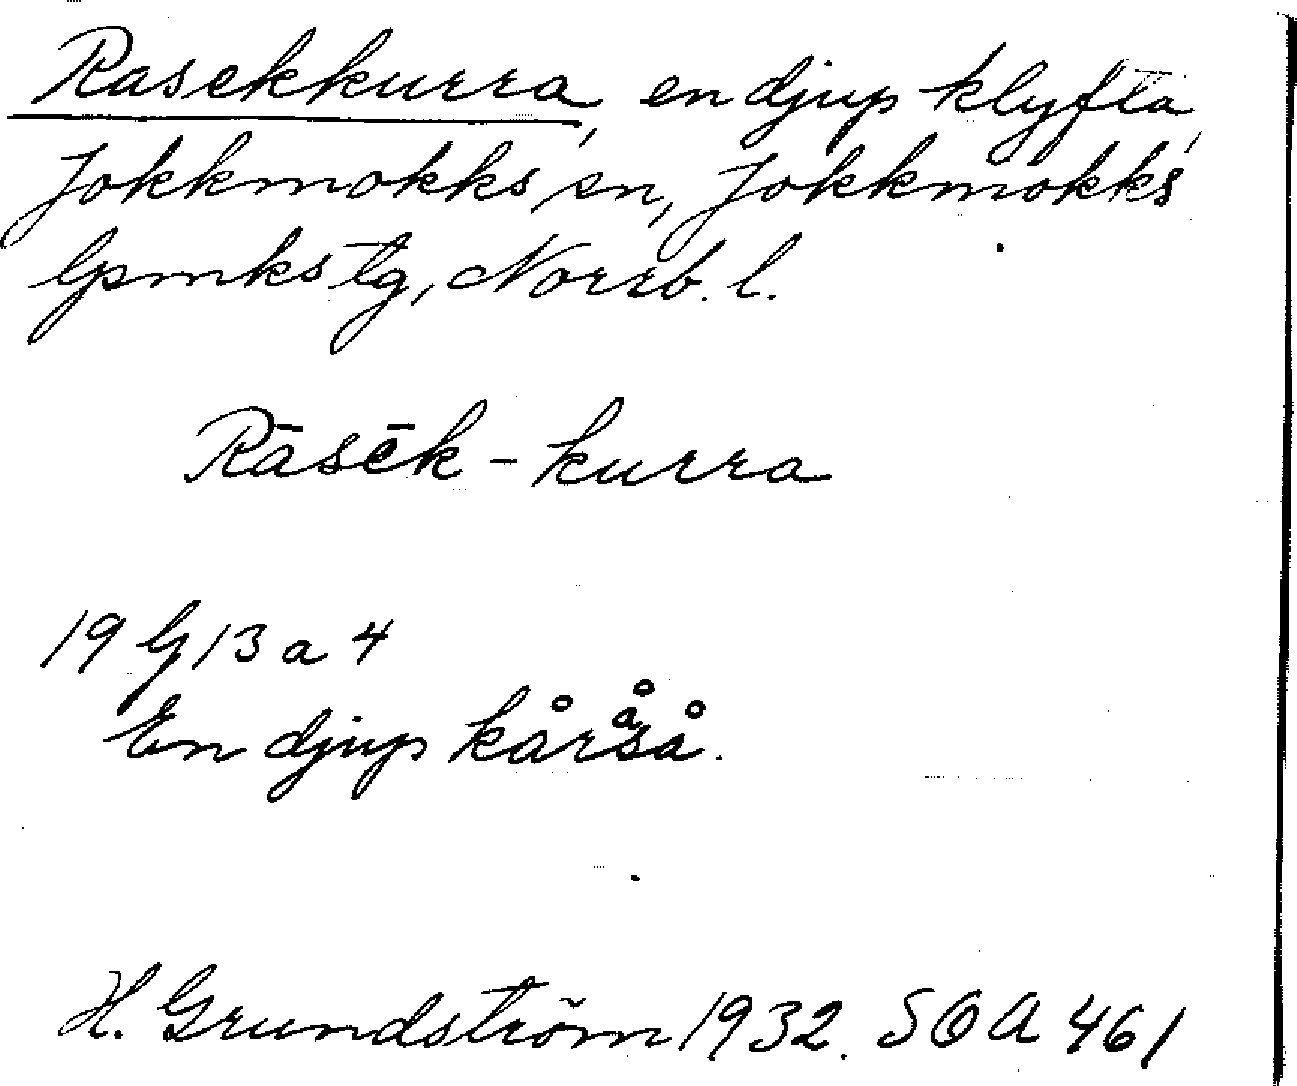 Rasekkurra, en djup klyfta,
Jokkmokks sn, Jokkmokks
lpmks tg, Norrb. l.
Rāsēk - kurra
19 G 13 a 4
En djup kårså.
H. Grundström 1932. SOA 461